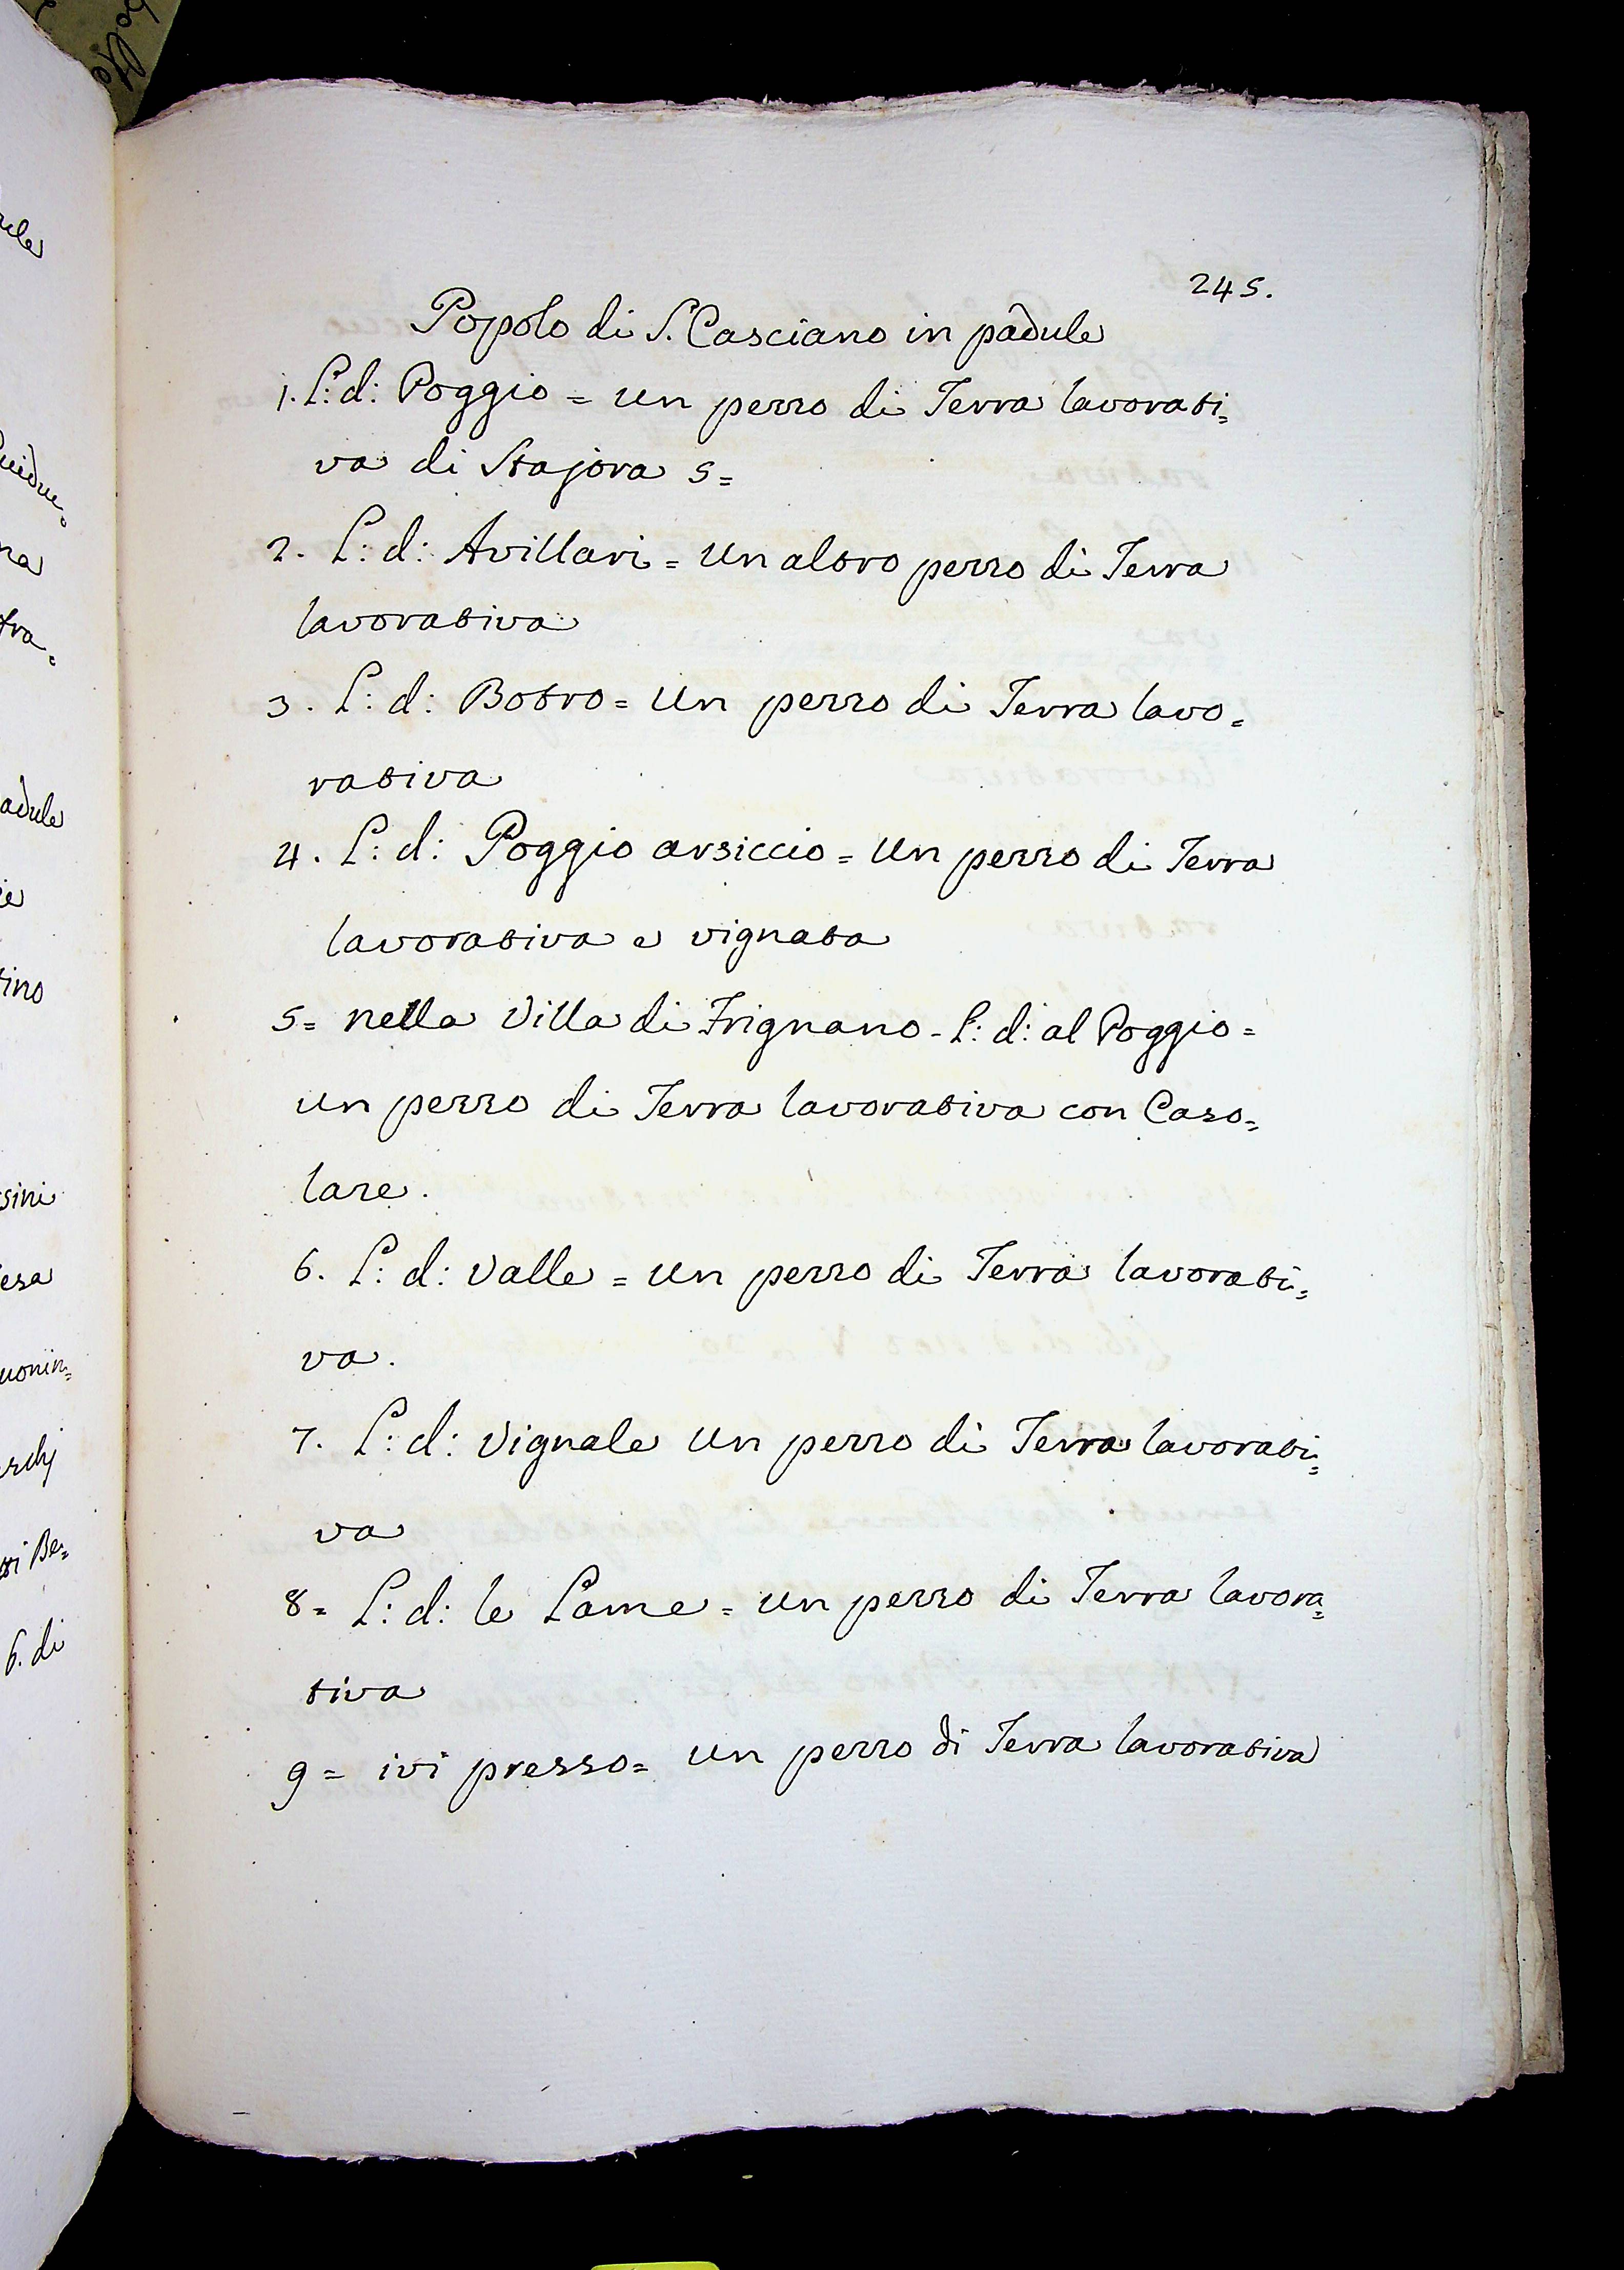 245.
Popolo di S. Casciano in padule
1. L: d: Poggio = un pezzo di Terra lavorati=
va di Stajora 5=
2. L: d: Avillari = un altro pezzo di Terra
lavorativa
3. L: d: Botro = un pezzo di Terra lavo=
rativa
4. L: d: Poggio arsiccio = un pezzo di Terra
lavorativa e vignata
5= nella Villa di Frignano - L: d: al Poggio =
un pezzo di Terra lavorativa con Caso=
lare.
6. L: d: Valle = un pezzo di Terra lavorati=
va.
7. L: d: Vignale un pezzo di Terra lavorati=
va
8= L: d: le Lame = un pezzo di Terra lavora=
tiva
9 = ivi presso = un pezzo di Terra lavorativa